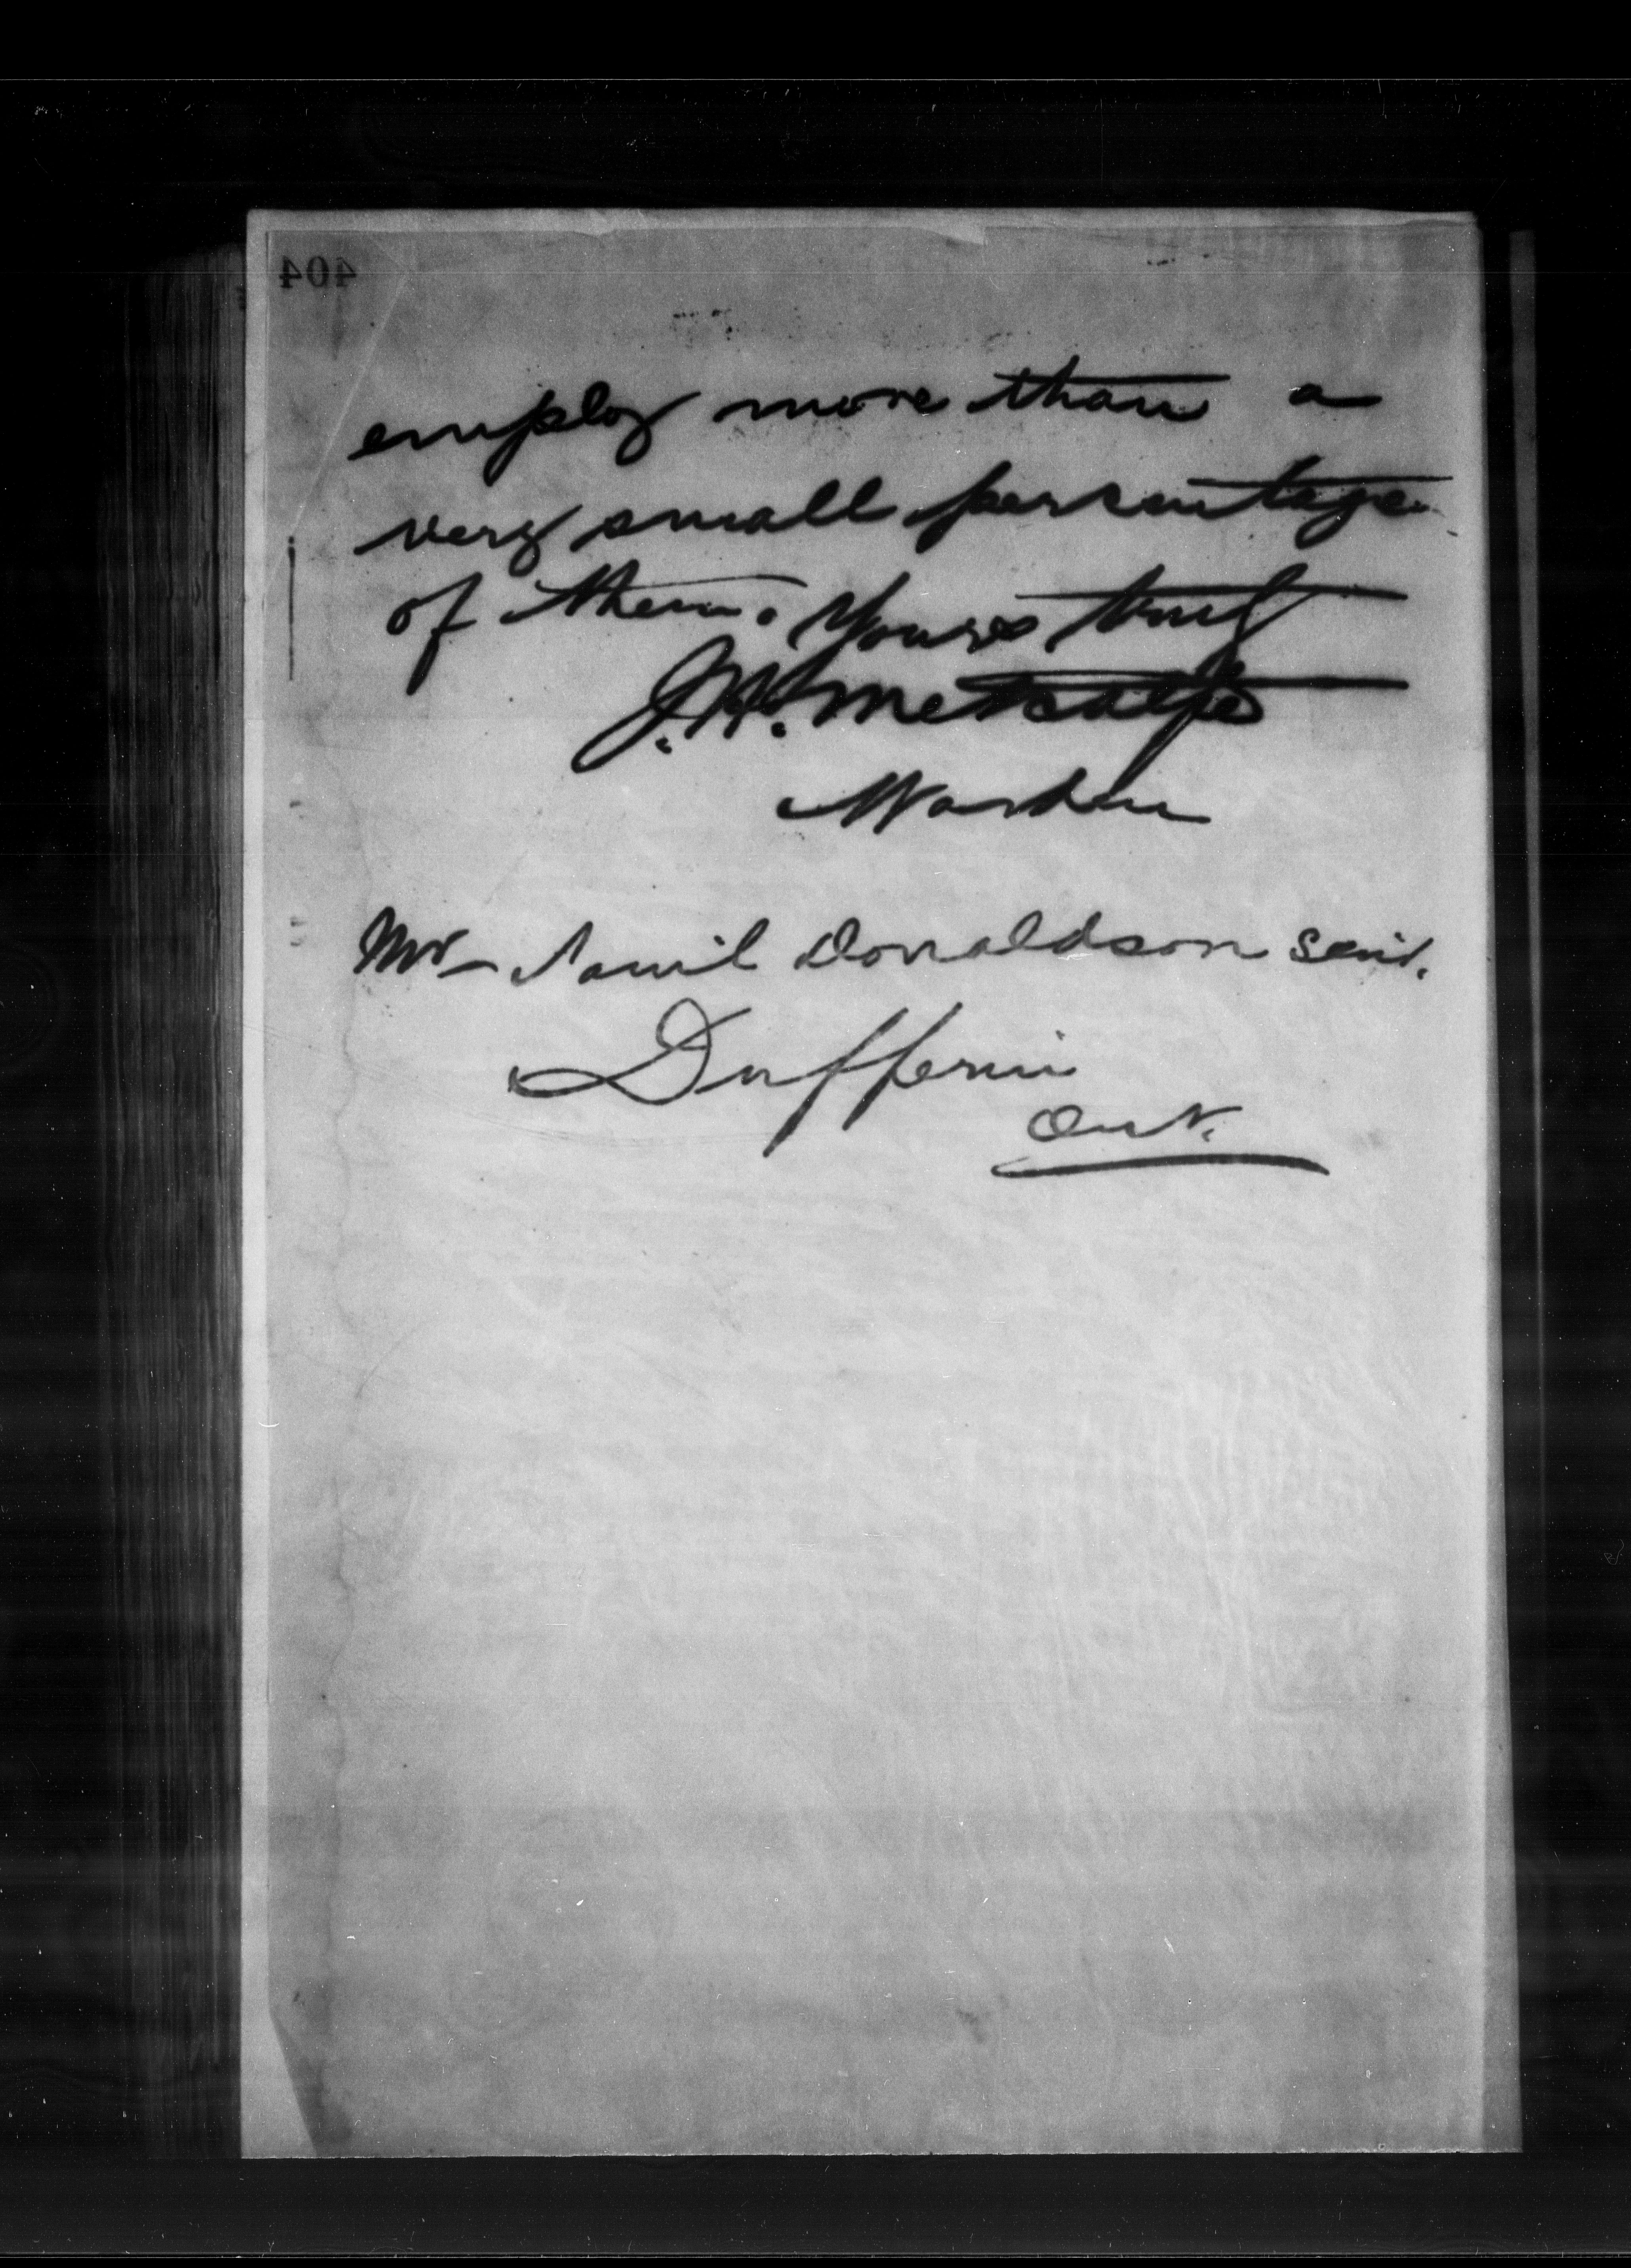 404
employ more than a
very small percentage
of them. Yours truly
J.H. Metcalfe
Warden
Mr Saml Donaldson Senr.
Dufferin
Ont.